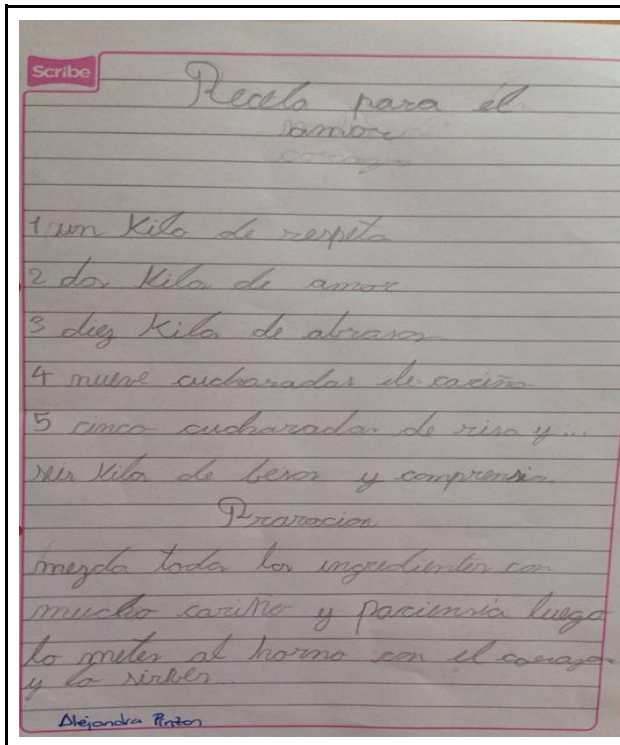 Scribe
Receta para el
amor
corazon
1 un kilo de respeto
2 dos kilos de amor
3 diez kilos de abrasos
4 nueve cucharadas de cariño
5 cinco cucharadas de risa y...
seis kilos de besos y comprensin
Praracion
mezcla todos los ingredientes con
mucho cariño y paciensia luego
lo metes al horno con el corazon
y lo sirbes...
Alejandra Pinzon